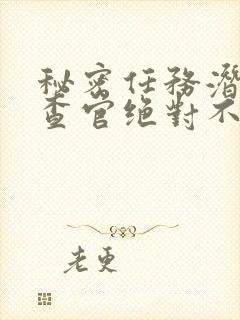 秘密任務潛
查官绝對不
老更